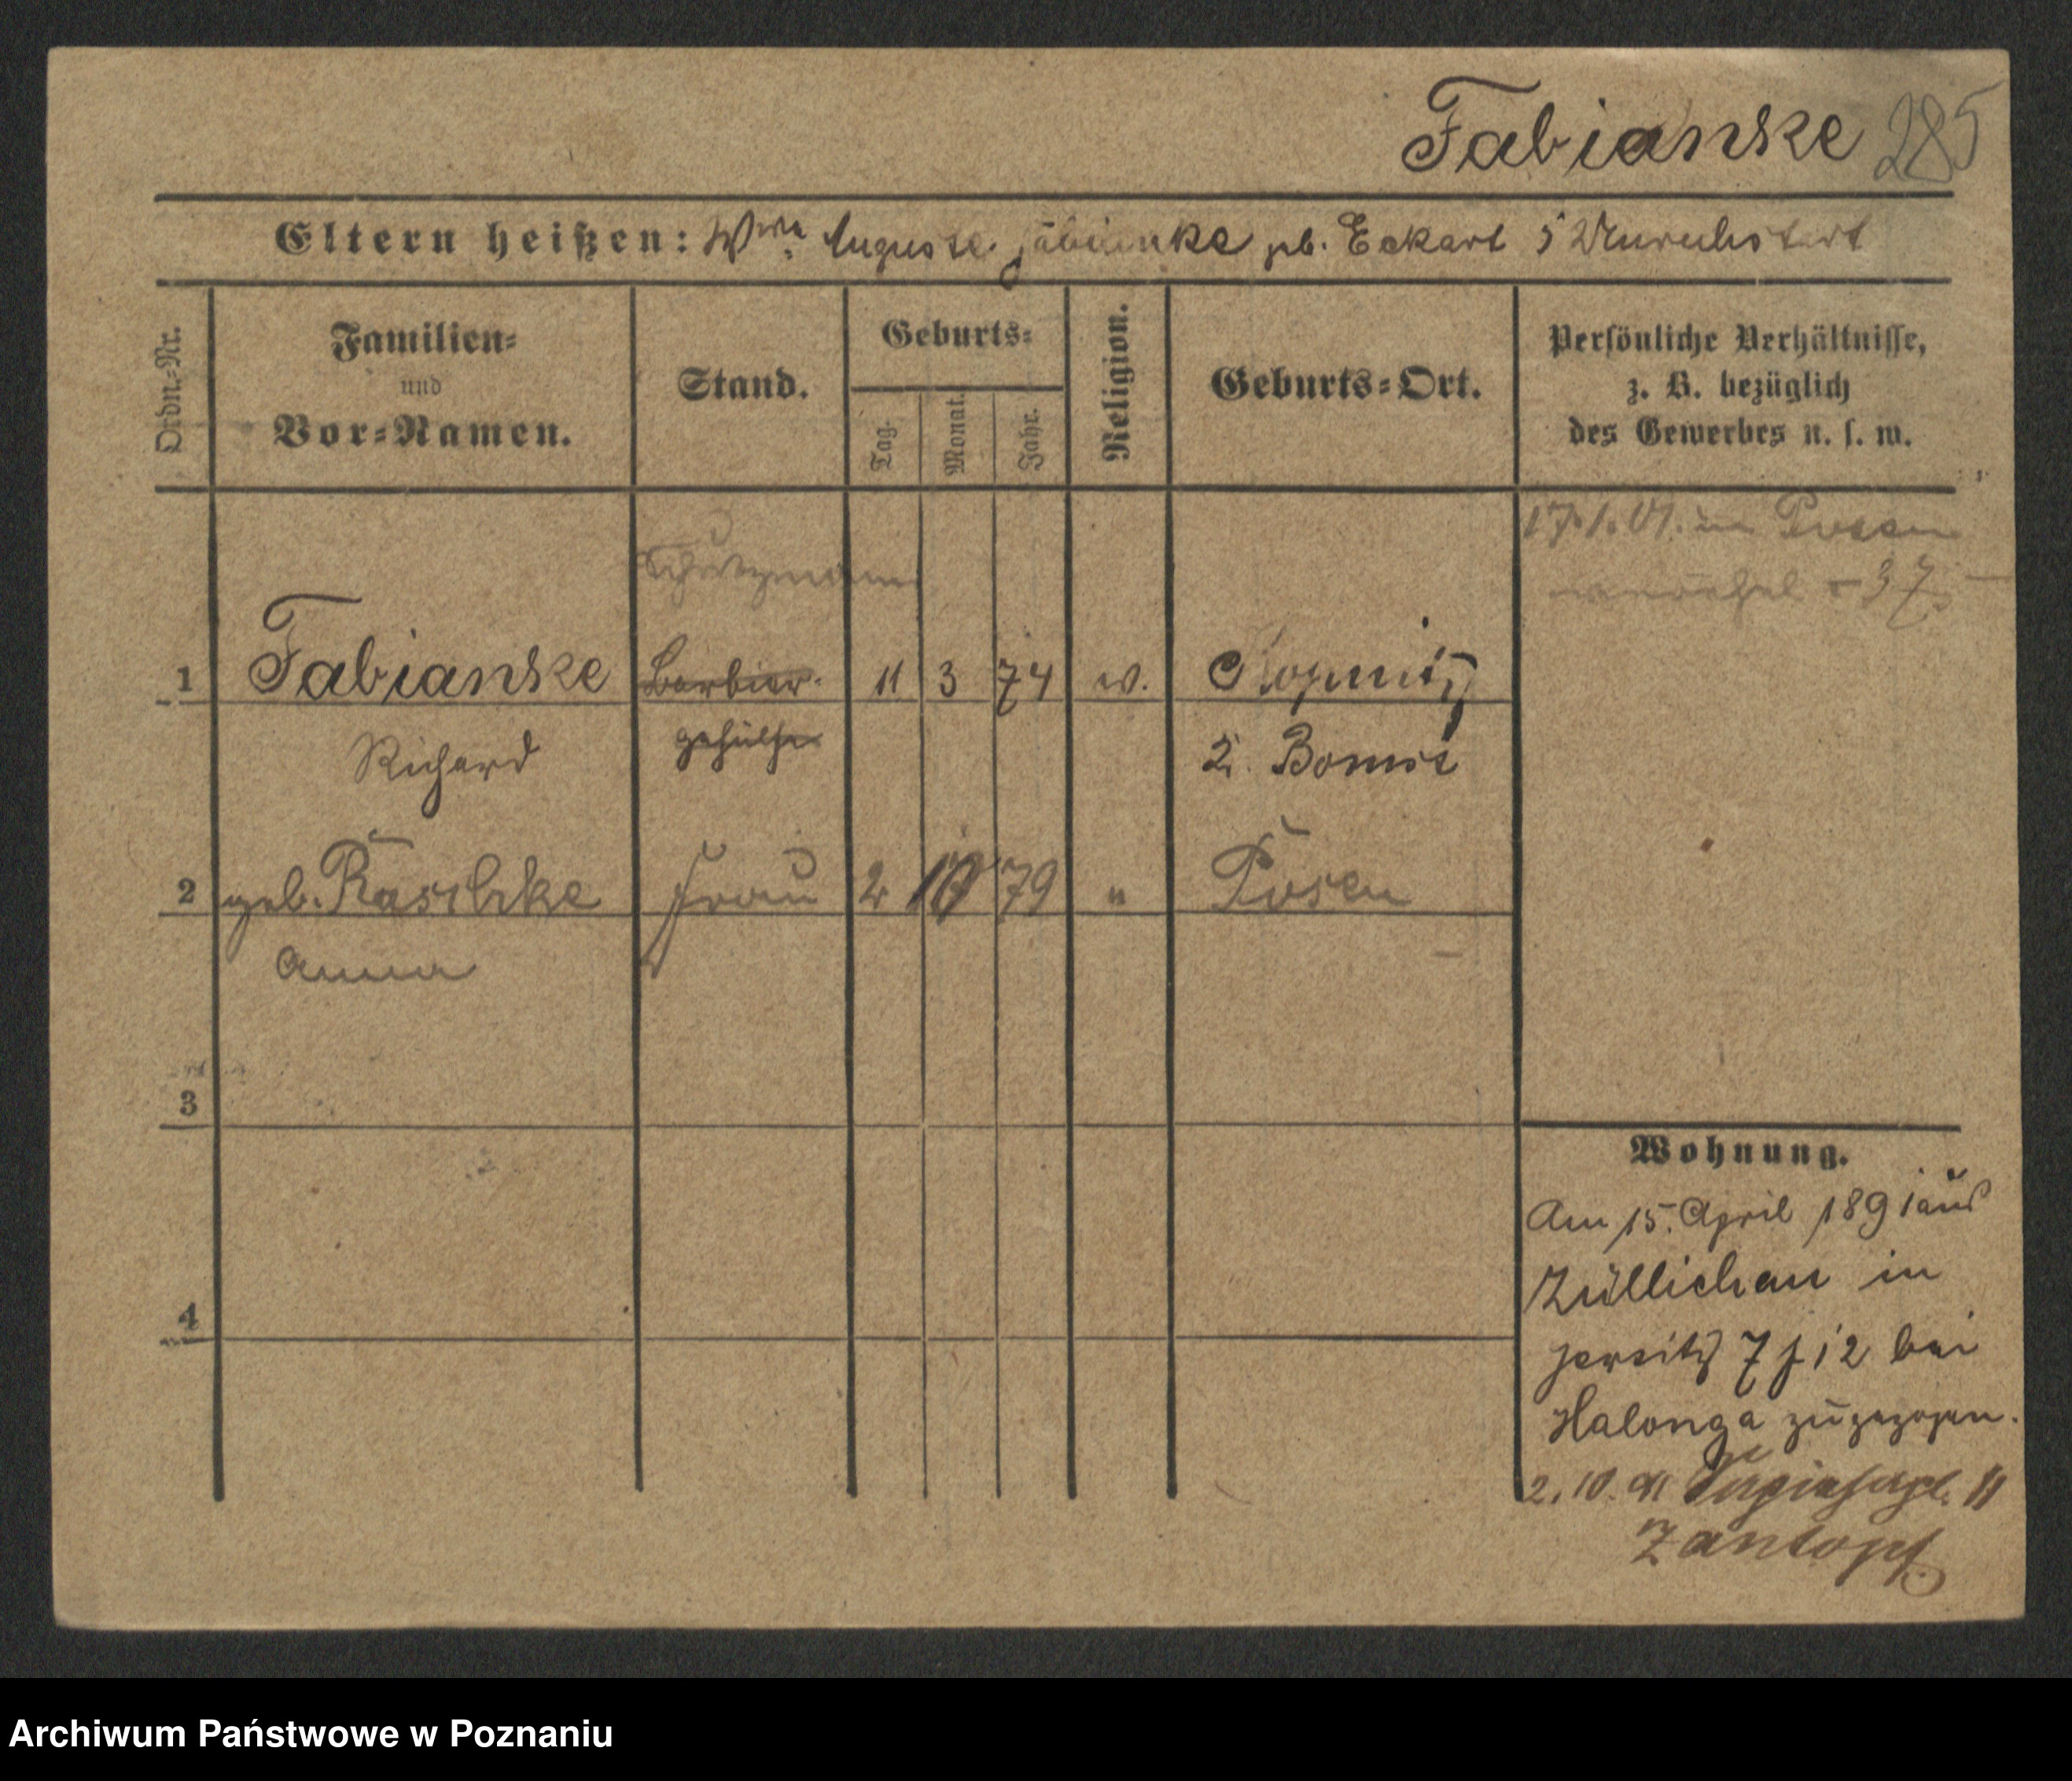 Fabianske 285
Eltern heißen: Wwe Auguste Fabianke geb. Eckart Unruhstadt
Ordn.-Nr.
Familien- und Vor-Namen.
Stand.
Geburts-
Tag.
Monat.
Jahr.
Religion.
Geburts-Ort.
Persönliche Verhältnisse,
z. B. bezüglich
des Gewerbes u. s. w.
17.1.01. in Posen
37
Schutzmann
1 Fabianske Barbier- 11 3 74 ev. Kopnitz
Richard gehülfe Bomst
2 geb. Raschke Frau 2 10 79 " Posen
Anna
3
4
Wohnung.
Am 15. April 1891 aus
Züllichau in
Jersitz 7 j 12 bei
Halonga zugezogen.
2. 10. 91 11
Zantopf
Archiwum Państwowe w Poznaniu